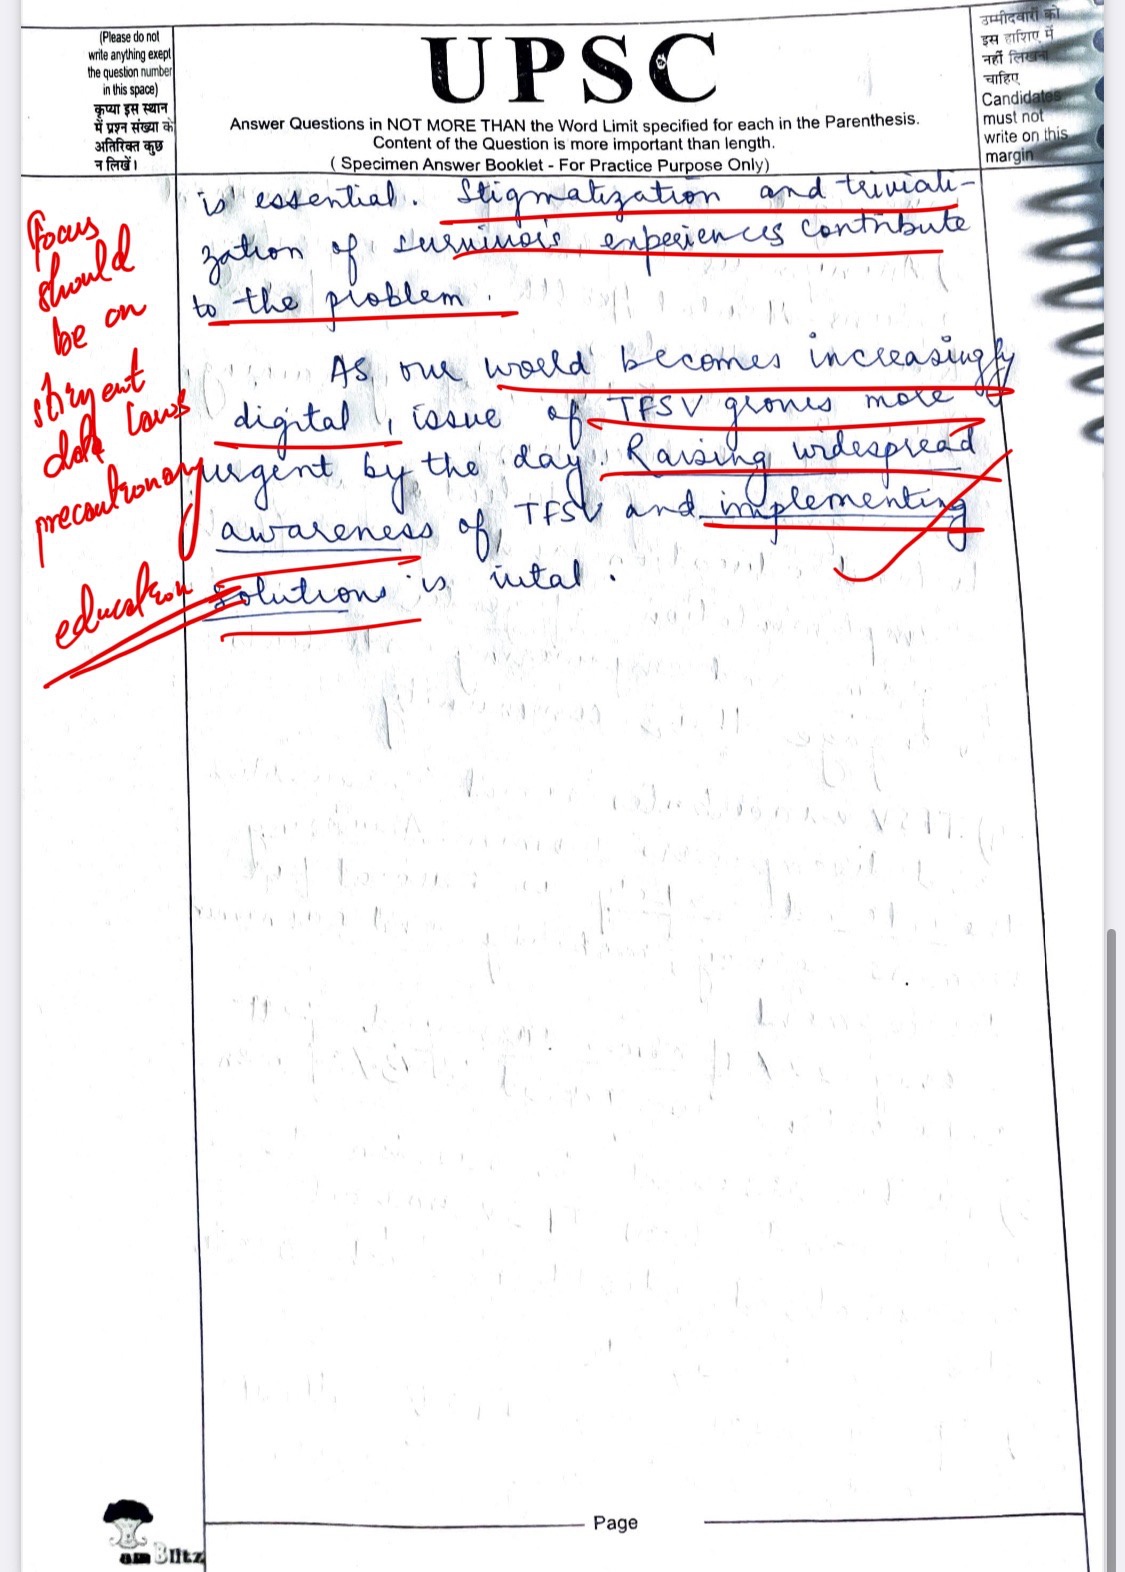 (Please do not
write anything exept
the question number
in this space)
कृप्या इस स्थान
में प्रश्न संख्या के
अतिरिक्त कुछ
न लिखें।
UPSC
Answer Questions in NOT MORE THAN the Word Limit specified for each in the Parenthesis.
Content of the Question is more important than length.
( Specimen Answer Booklet - For Practice Purpose Only)
उम्मीदवारों को
इस हाशिए में
नहीं लिखना
चाहिए
Candidates
must not
write on this
margin
is essential. Stigmatization and triviali-
zation of survivors experiences contribute
to the problem.
As our world becomes increasingly
digital, issue of TFSV grows more
urgent by the day. Raising widespread
awareness of TFSV and implementing
solutions is vital.
focus
should
be on
stringent
data laws
precautionary
education
Page
Blitz